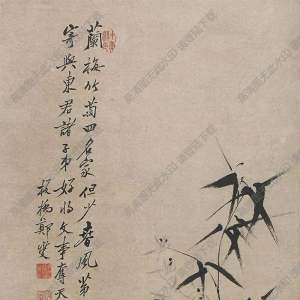 蘭梅竹菊四名家但少春風第
寄與東君諸子弟好將文事奪天
板橋鄭燮